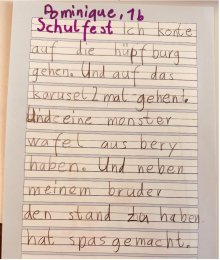 Dominique, 1b
Schulfest Ich konte
auf die hüpfburg
gehen. Und auf das
karusel 2 mal gehen!
Und eine monster
wafel aus bery
haben. Und neben
meinem bruder
den stand zu haben
hat spas gemacht.